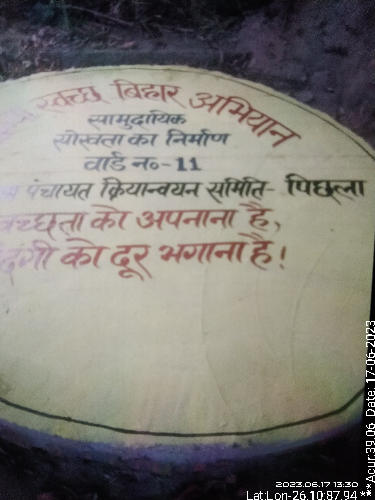 स्वच्छ बिहार अभियान
सामुदायिक
सोखता का निर्माण
वार्ड न०-11
पंचायत क्रियान्वयन समिति- पिछला
च्छता को अपनाना है,
दगी को दूर भगाना है!
2023.06.17 13:30
Lat:Lon-26.10:87.94 **Acur:39.06 Date: 17-06-2023